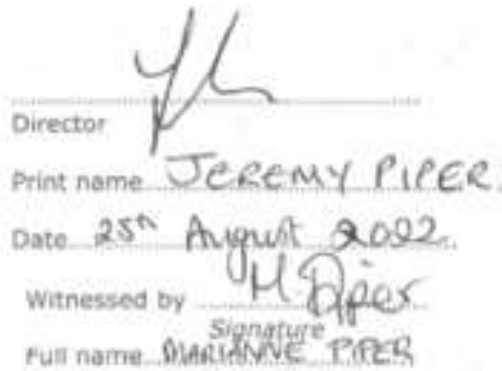 Director
Print name JEREMY PIPER
Date 25th August 2022
Witnessed by M Piper
Signature
Full name MARIANNE PIPER